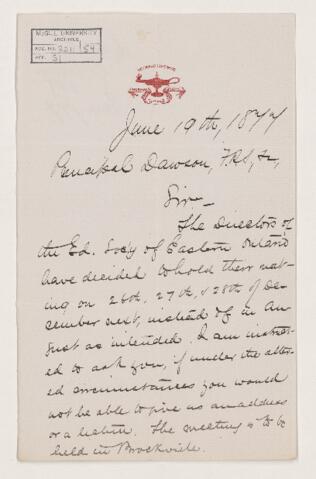 McGILL UNIVERSITY
ARCHIVES
ACC. NO. 2211/54
REF. 31
June 19th, 1877
Principal Dawson, F.R.S., &c,
Sir—
The Directors of
the Ed. Socy of Eastern Ontario
have decided to hold their meet-
ing on 26th, 27th, & 28th of De-
cember next, instead of in Au-
gust as intended. I am instruct-
ed to ask you, if under the alter-
ed circumstances you would
not be able to give us an address
or a lecture. The meeting is to be
held in Brockville.